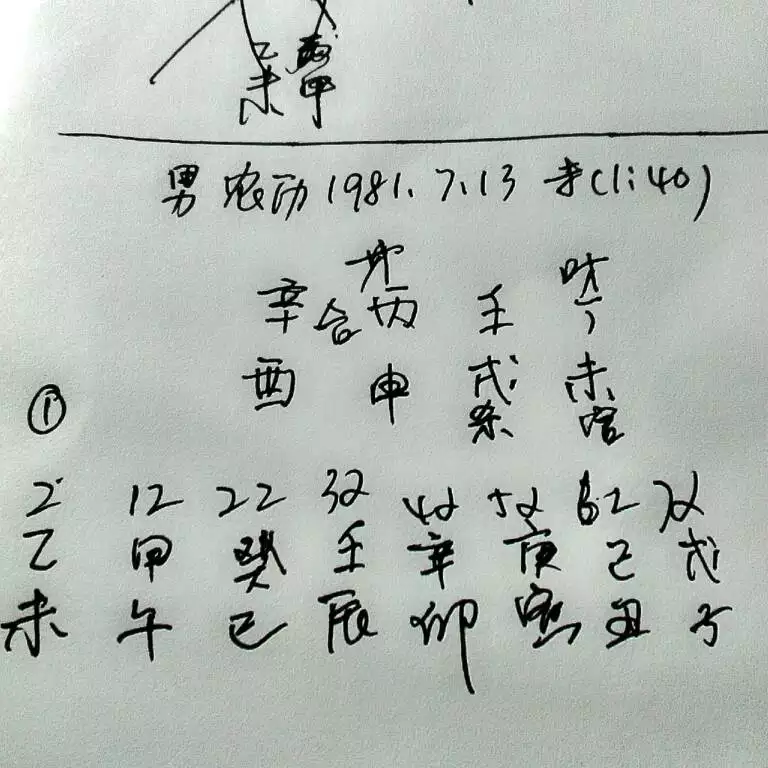 乙
未 申
男 农历 1981.7.13 未(1:40)
辛 合 丙 壬 丁
酉 申 戌 未
①
2 12 22 32 42 52 62 72
乙 甲 癸 壬 辛 庚 己 戊
未 午 巳 辰 卯 寅 丑 子